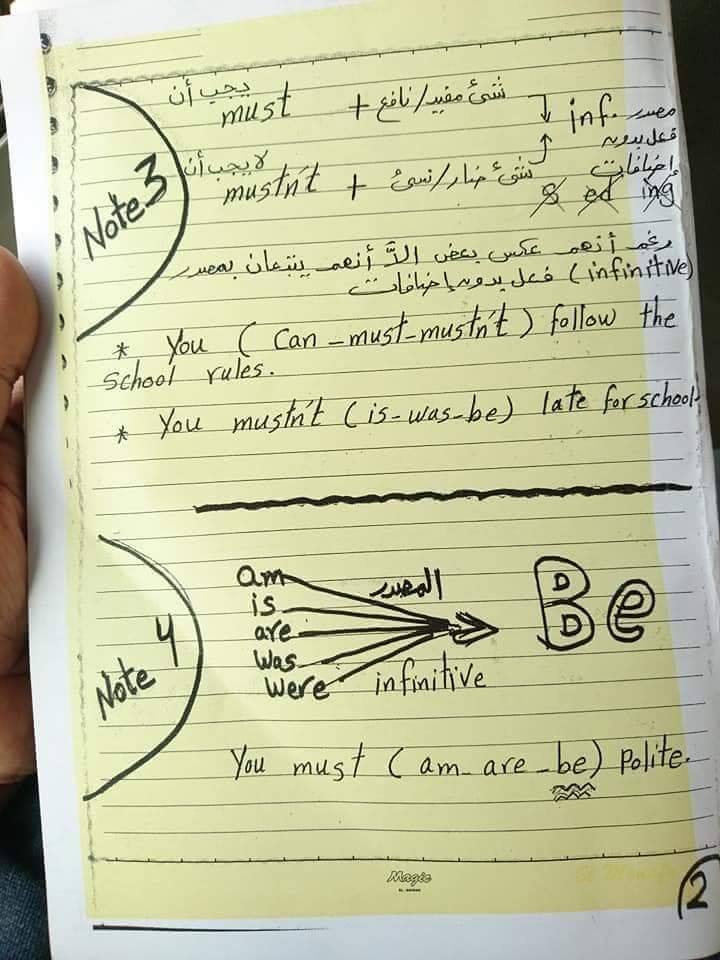 Note 3
يجب أن
must + شئ مفيد/نافع
inf. مصدر
فعل بدون
إضافات
لا يجب أن
mustn't + شئ ضار/سئ
s ed ing
رغم أنهم عكس بعض الَّا أنهم يتبعان بمصدر
(infinitive) فعل بدون إضافات
* You (Can - must - mustn't) follow the
School rules.
* You mustn't (is - was - be) late for school.
Note 4
am
is
are
was
were
المصدر
infinitive
Be
You must (am - are - be) polite.
Magic
2